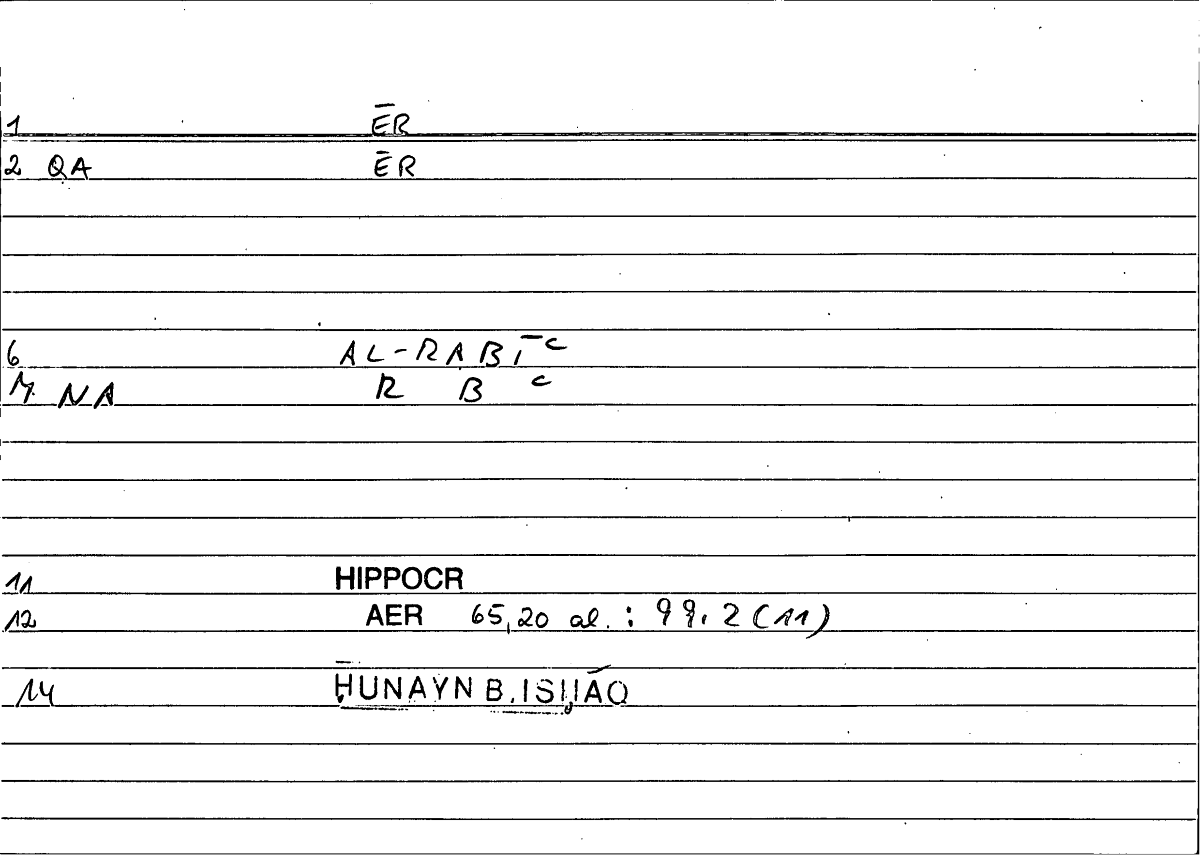 1 ĒR
2 QA ĒR
6 AL-RABĪᶜ
7. NA R B ᶜ
11 HIPPOCR
12 AER 65,20 al. : 99.2 (11)
14 ḤUNAYN B. ISḤĀQ